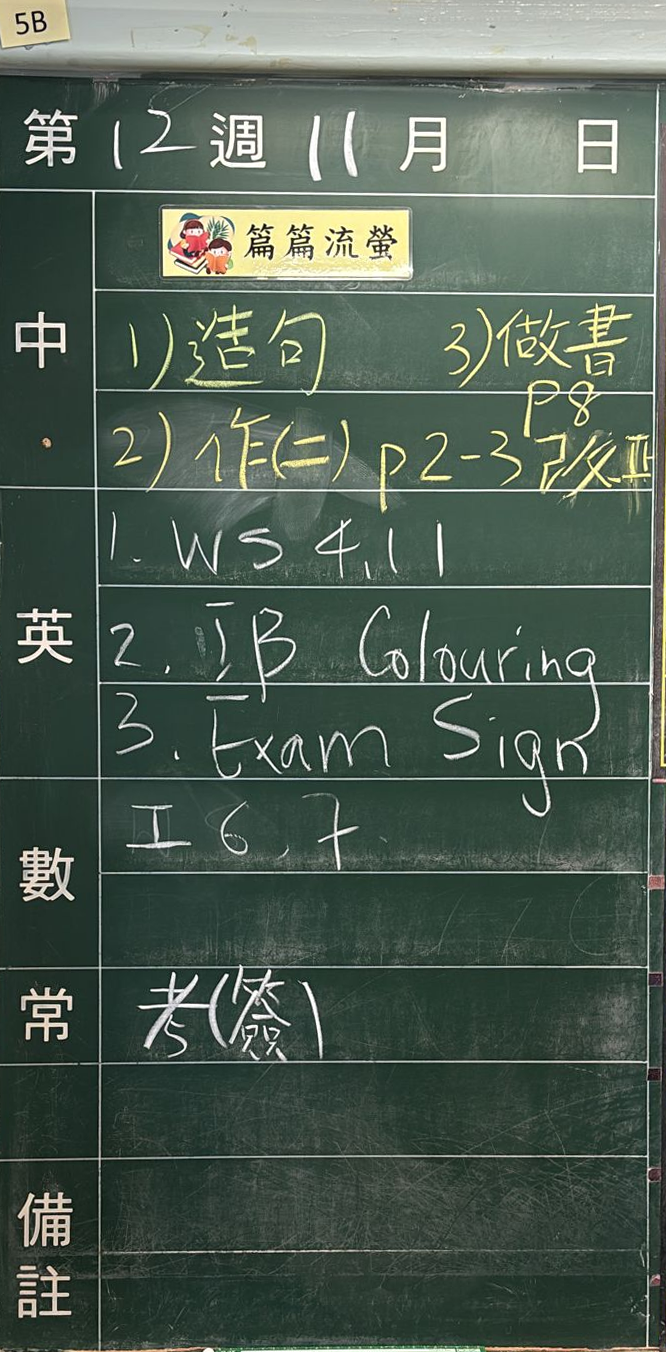 5B
第12週11月 日
篇篇流螢
中
1)造句 3)做書
p8
2)作(二) p2-3 改II
英
1. WS 4,11
2. IB Colouring
3. Exam Sign
數
I 6, 7.
常
考(簽)
備註